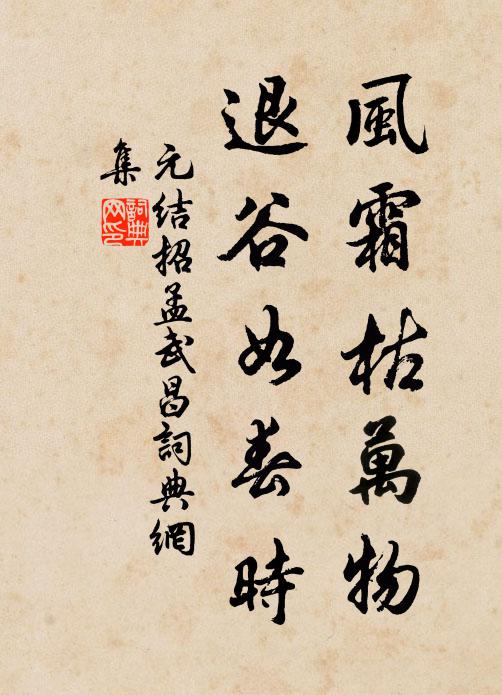 風霜枯萬物
退谷如春時
元結招孟武昌詞典網
集
詞典網印